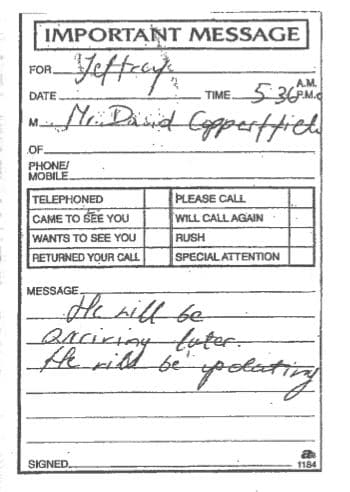 IMPORTANT MESSAGE
FOR Jeffrey
DATE TIME 5:36 A.M. P.M.
M Mr. David Copperffield
OF
PHONE/
MOBILE
TELEPHONED PLEASE CALL
CAME TO SEE YOU WILL CALL AGAIN
WANTS TO SEE YOU RUSH
RETURNED YOUR CALL SPECIAL ATTENTION
MESSAGE
He will be
arriving later.
He will be updating
SIGNED
1184